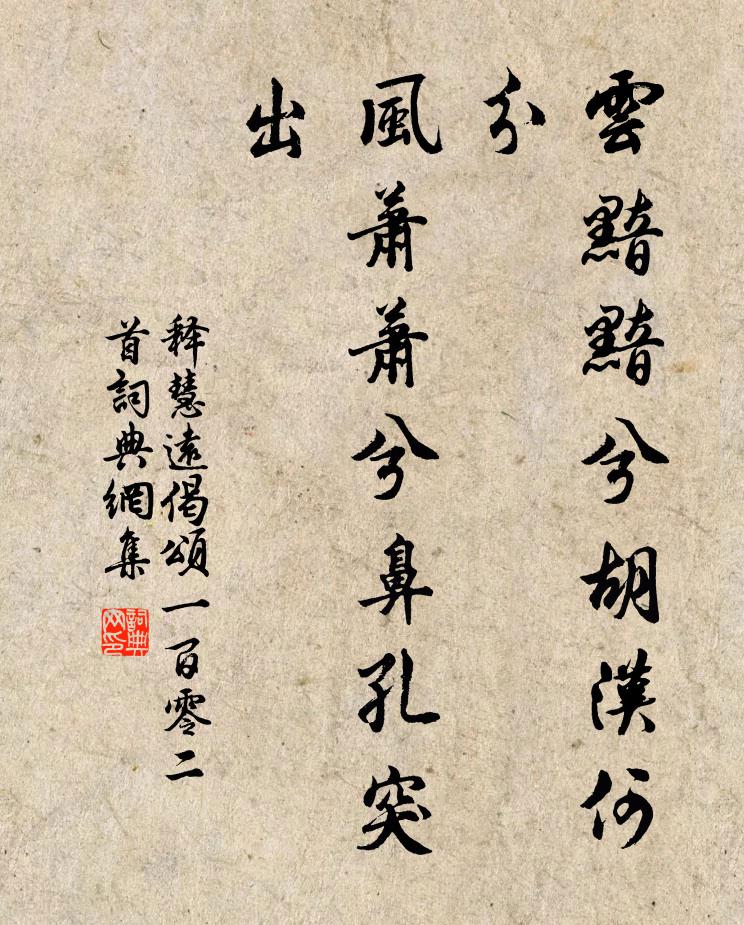 雲黯黯兮胡漢何
分
風蕭蕭兮鼻孔突
出
釋慧遠偈頌一百零二
首詞典網集
詞典
网印